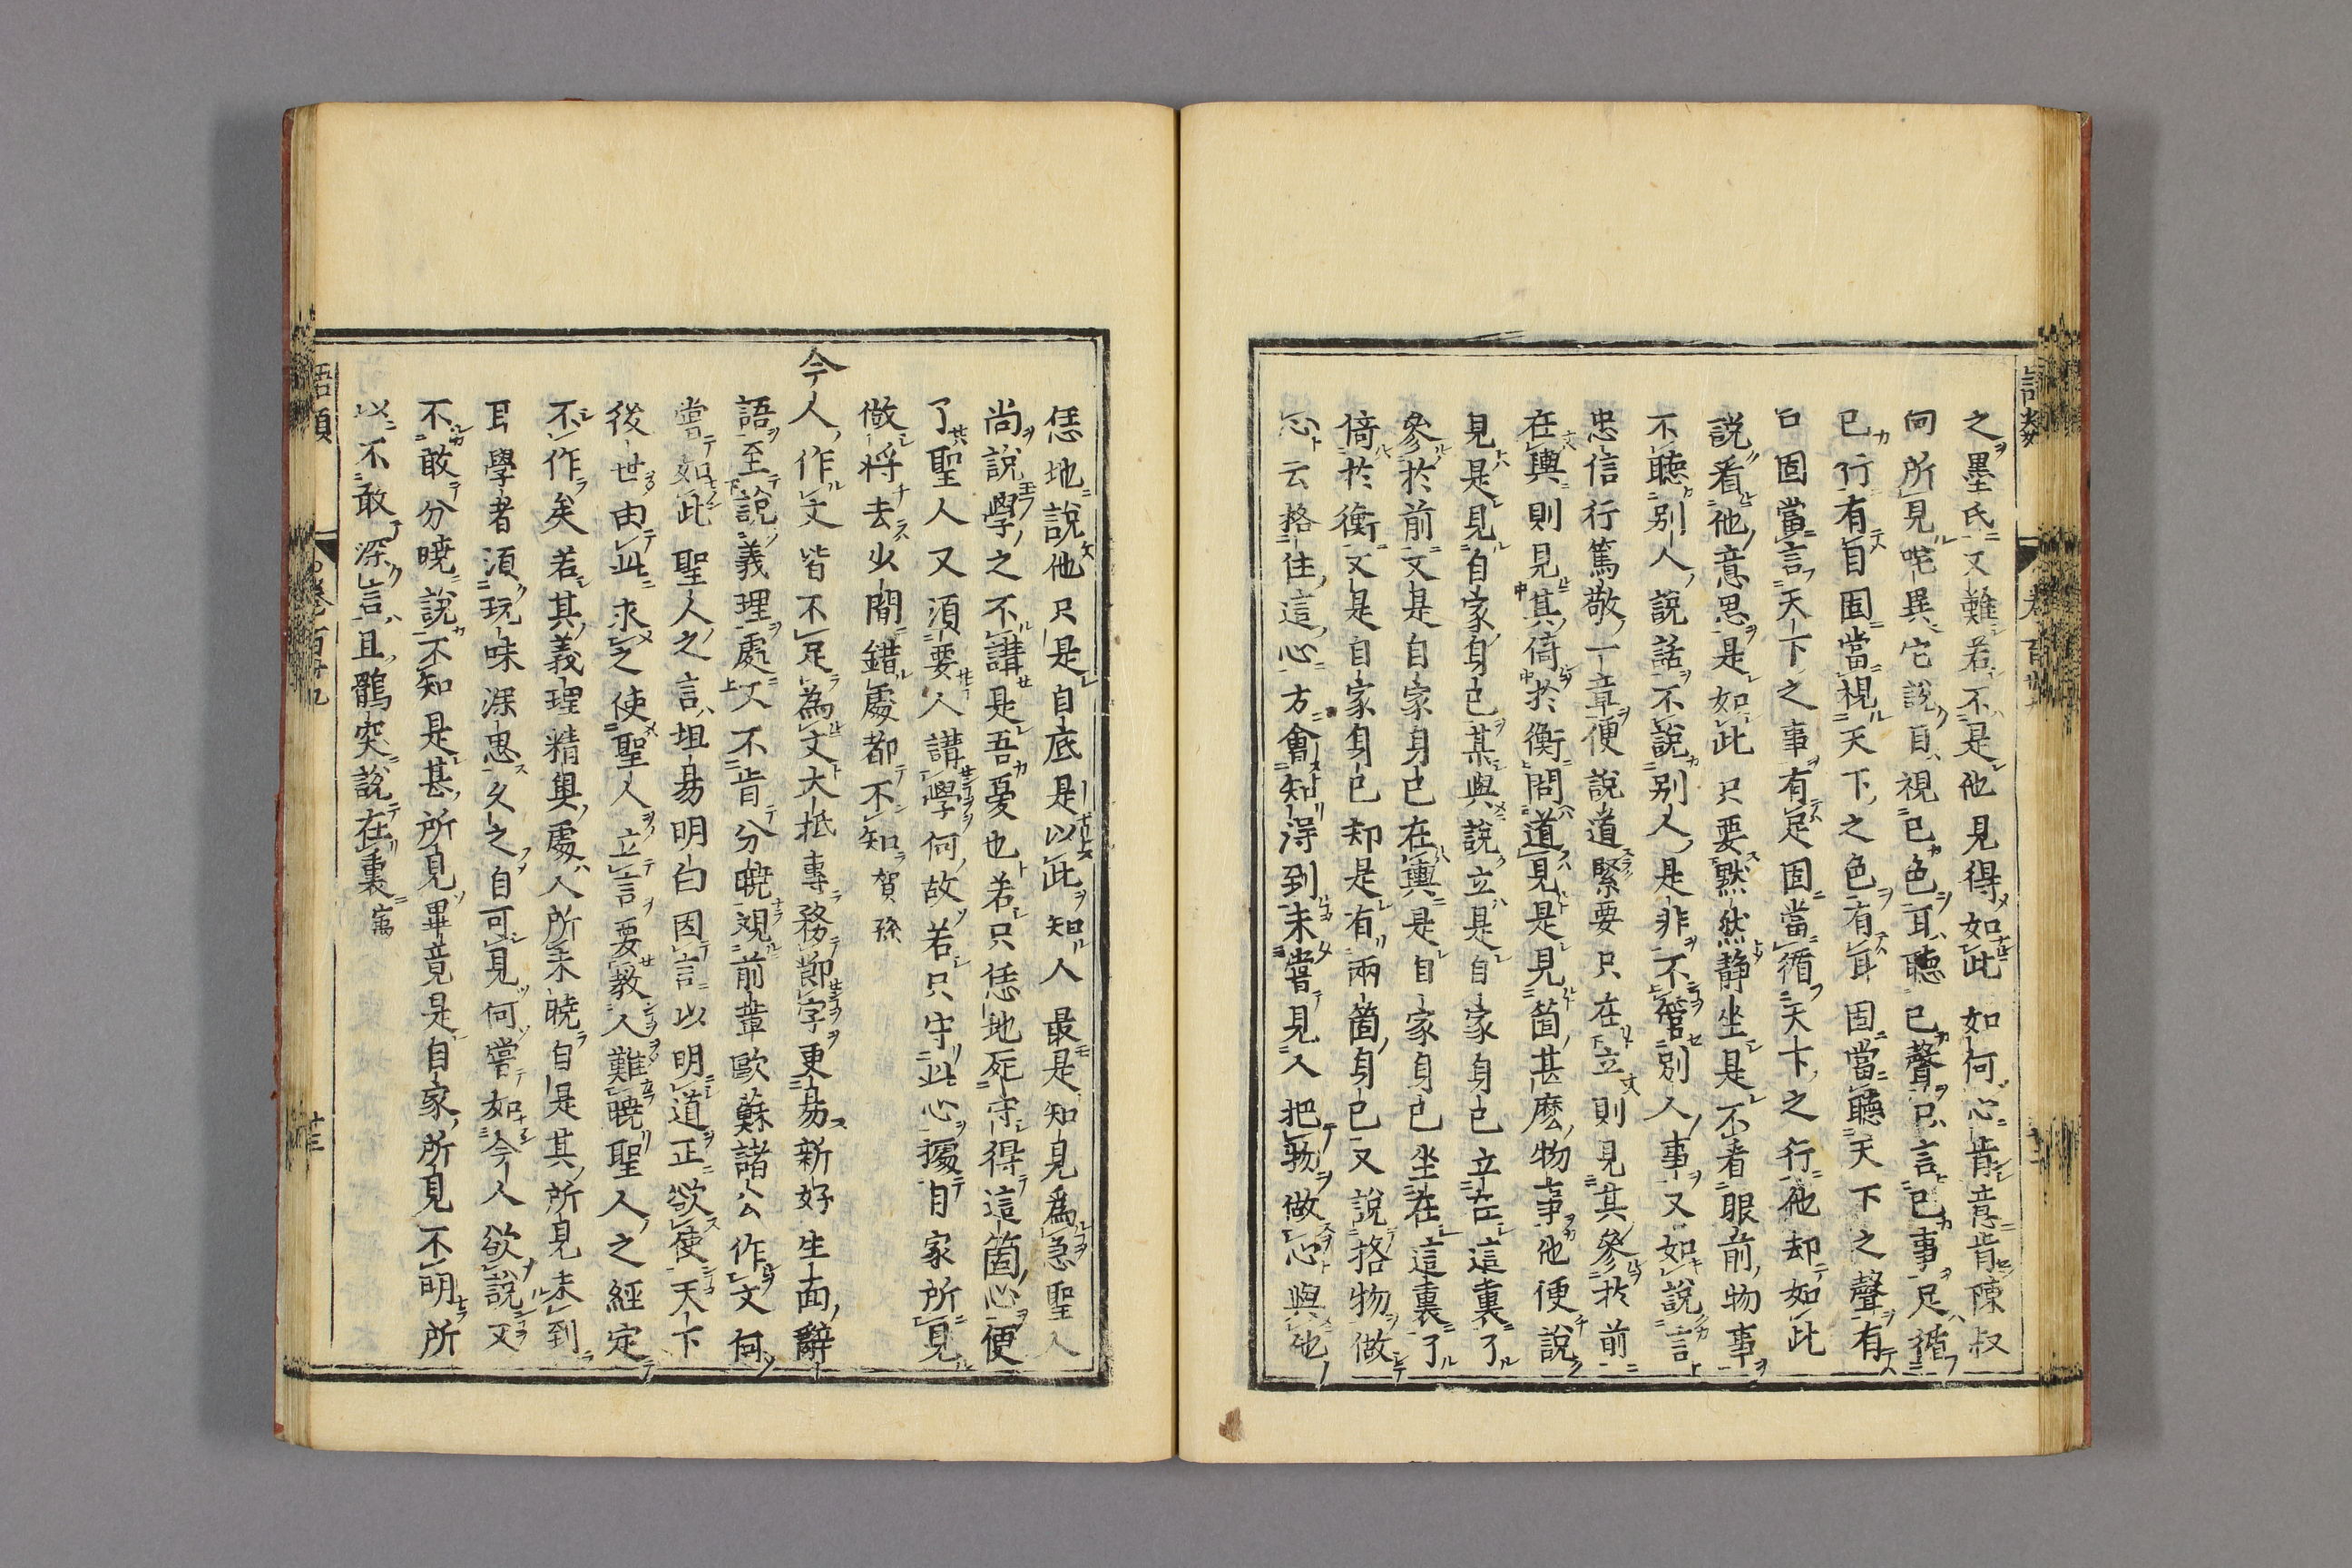 之墨氏又難若不是他見得如此如何心肯意肯陳叔
向所見咤異它說目視己色耳聽己聲口言己事足循
己行有目固當視天下之色有耳固當聽天下之聲有
口固當言天下之事有足固當循天下之行他却如此
說看他意思是如此只要默然静坐是不看眼前物事
不聽別人說話不說別人是非不管別人事又如說言
忠信行篤敬一章便說道緊要只在立則見其參於前
在輿則見其倚於衡問道見是見箇甚麽物事他便說
見是見自家身己某與說立是自家身己立在這裏了
參於前又是自家身己在輿是自家身己坐在這裏了
倚於衡又是自家身己却是有兩箇身己又說格物做
心云格住這心方會知得到未嘗見人把物做心與他
恁地說他只是自底是以此知人最是知見為急聖人
尚說學之不講是吾憂也若只恁地死守得這箇心便
了聖人又須要人講學何故若只守此心據自家所見
做將去少間錯處都不知賀孫
今人作文皆不足為文大抵專務節字更易新好生面辭
語至說義理處又不肯分曉觀前輩歐蘇諸公作文何
嘗如此聖人之言坦易明白因言以明道正欲使天下
後世由此求之使聖人立言要教人難曉聖人之經定
不作矣若其義理精奧處人所未曉自是其所見未到
耳學者須玩味深思久之自可見何嘗如今人欲說又
不敢分曉說不知是甚所見畢竟是自家所見不明所
以不敢深言且鶻突說在裏寓
語類
卷百卅九